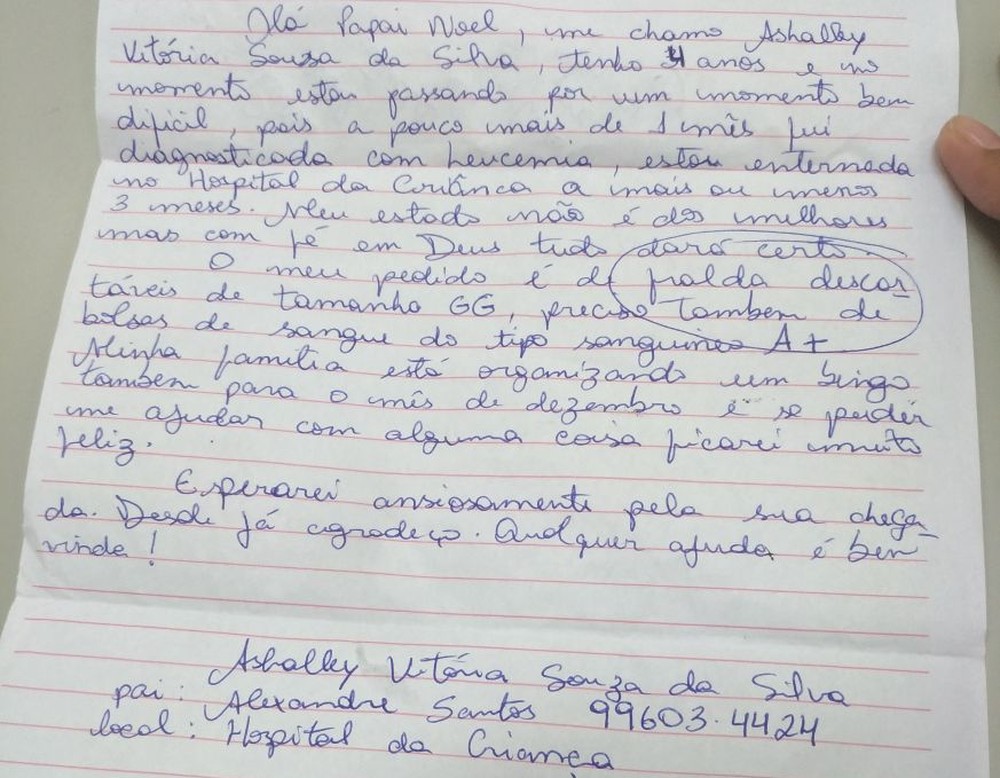 Olá Papai Noel, me chamo Ashalley
Vitória Souza da Silva, tenho 4 anos e no
momento estou passando por um momento bem
dificil, pois a pouco mais de 1 mês fui
diagnosticada com Leucemia, estou enternada
no Hospital da Criânca a mais ou menos
3 meses. Meu estado não é dos melhores
mas com fé em Deus tudo dará certo
O meu pedido é de fralda descar
táveis de tamanho GG, preciso também de
bolsas de sangue do tipo sanguineo A+
Minha família está organizando um bingo
também para o mês de dezembro e se puder
me ajudar com alguma coisa ficarei muito
feliz.
Esperarei ansiosamente pela sua chega
da. Desde já agradeço. Qualquer ajuda é bem
vinda!
Ashalley Vitória Souza da Silva
pai: Alexandre Santos 99603.4424
local: Hospital da Criança